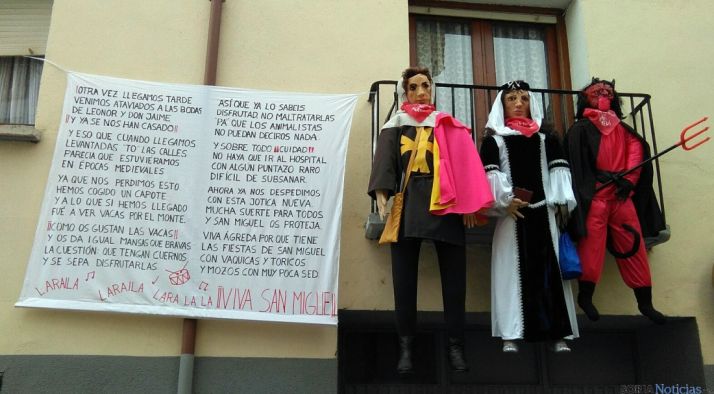 ¡OTRA VEZ LLEGAMOS TARDE
VENIMOS ATAVIADOS A LAS BODAS
DE LEONOR Y DON JAIME
¡¡Y YA SE NOS HAN CASADO!!
Y ESO QUE CUANDO LLEGAMOS
LEVANTADAS 'TO' LAS CALLES
PARECIA QUE ESTUVIERAMOS
EN ÉPOCAS MEDIEVALES
YA QUE NOS PERDIMOS ESTO
HEMOS COGIDO UN CAPOTE
Y A LO QUE SI HEMOS LLEGADO
FUÉ A VER VACAS POR EL MONTE.
¡¡COMO OS GUSTAN LAS VACAS!!
Y OS DA IGUAL MANSAS QUE BRAVAS
LA CUESTIÓN QUE TENGAN CUERNOS
Y SE SEPA DISFRUTARLAS
ASÍ QUE YA LO SABEIS
DISFRUTAD NO MALTRATARLAS
PA' QUE LOS ANIMALISTAS
NO PUEDAN DECIROS NADA.
Y SOBRE TODO ¡¡CUIDAO!!
NO HAYA QUE IR AL HOSPITAL
CON ALGÚN PUNTAZO RARO
DIFÍCIL DE SUBSANAR.
AHORA YA NOS DESPEDIMOS
CON ESTA JOTICA NUEVA.
MUCHA SUERTE PARA TODOS
Y SAN MIGUEL OS PROTEJA.
VIVA ÁGREDA POR QUE TIENE
LAS FIESTAS DE SAN MIGUEL
CON VAQUICAS Y TORICOS
Y MOZOS CON MUY POCA SED
LARAILA LARAILA LARA LA LA ¡¡VIVA SAN MIGUEL
SORIA Noticias